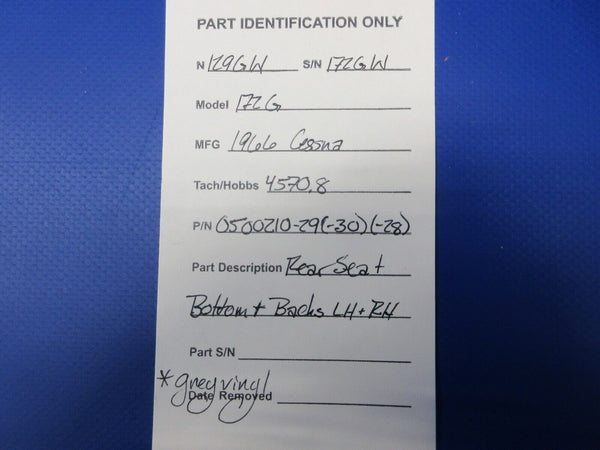 PART IDENTIFICATION ONLY
N 129GW S/N 172GW
Model 172G
MFG 1966 Cessna
Tach/Hobbs 4570.8
P/N 0500210-29(-30)(-28)
Part Description Rear Seat
Bottom + Backs LH + RH
Part S/N
*grey vinyl
Date Removed